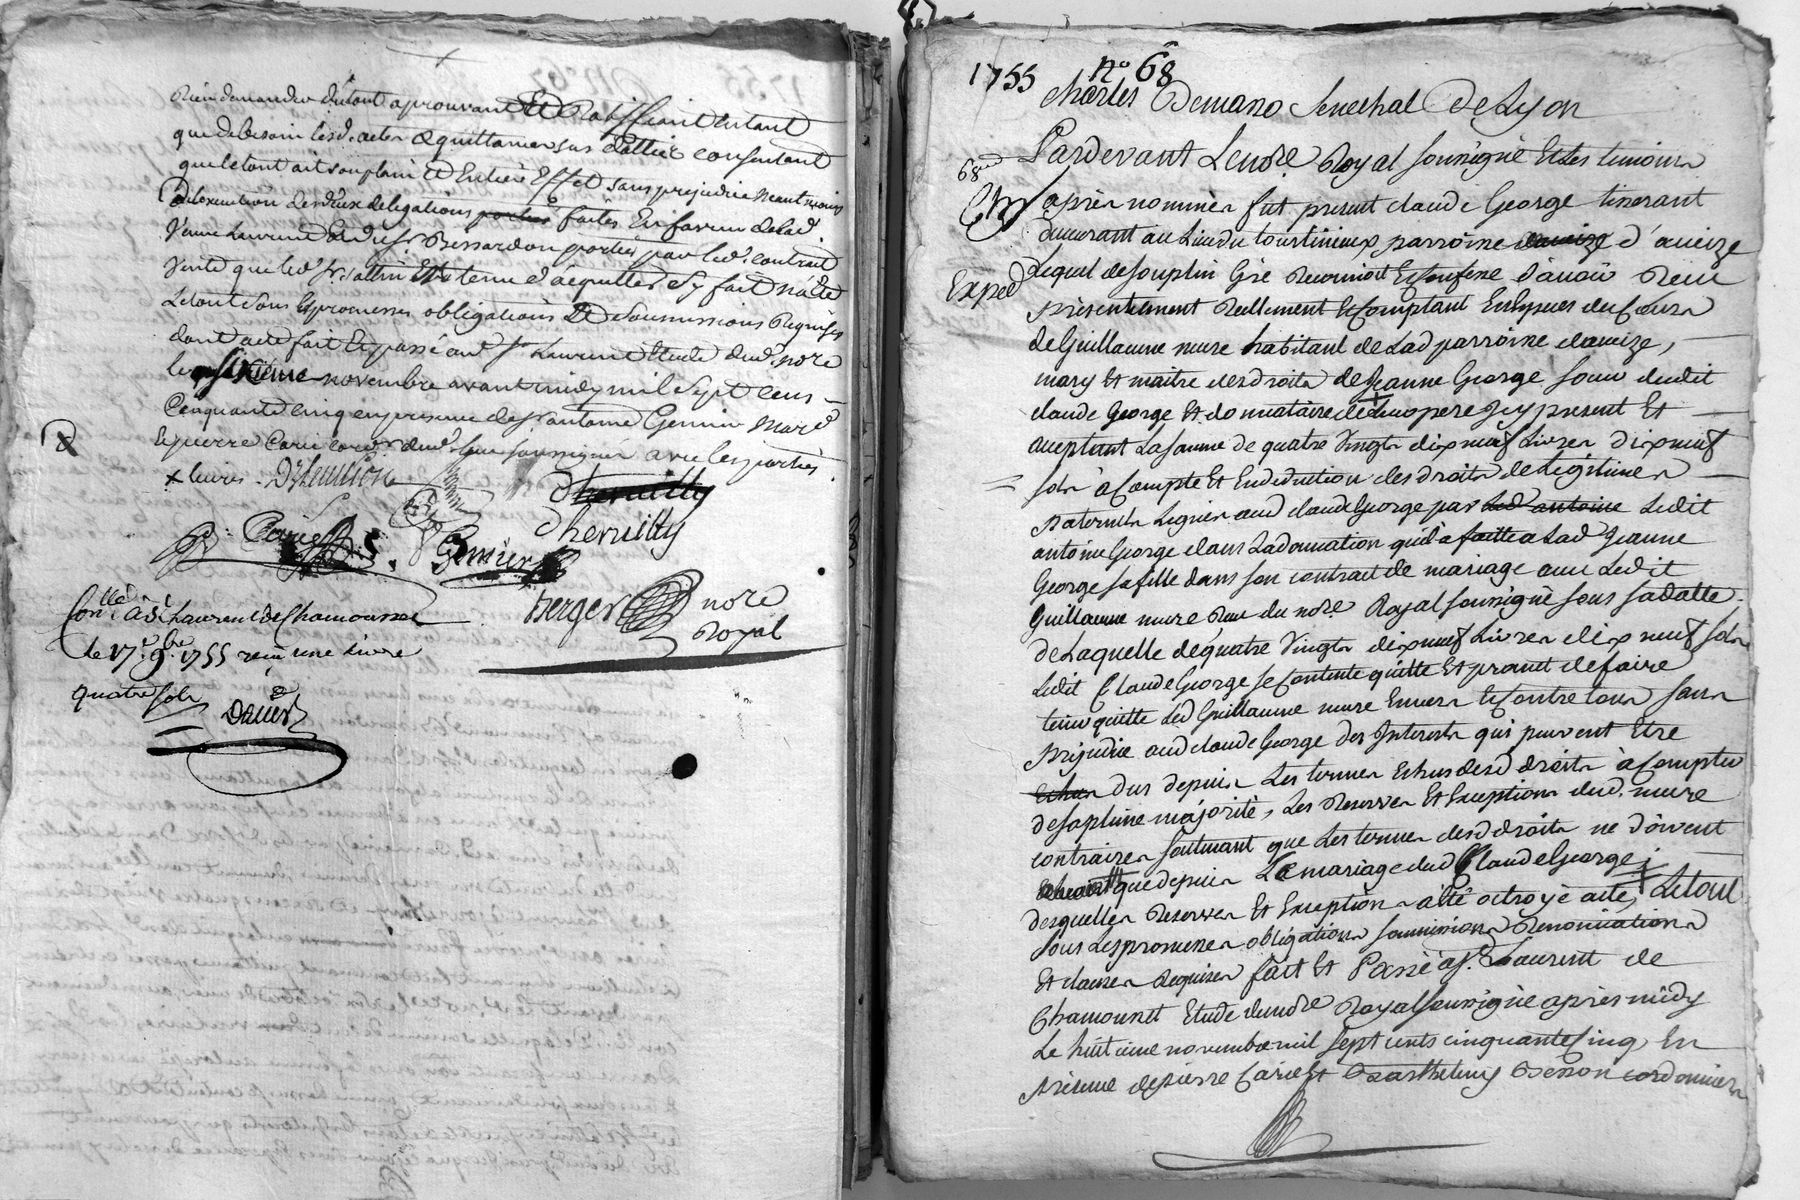 Rien demander dutout aprouvant Et Ratiffiant Entant
que de besoin lesd. actes & quittances sus dattées consentant
que le tout ait son plain Et Entière Effet sans prejudice neantmoins
a l'execution des deux delegations portées faites En faveur de lad.
veuve Laurent Et du Sr Bessardon portées par led. contrait
vente que led. Sr. Est tenu d'acquitter Sy fait n'a Eté
Le tout sous les promesses obligations Et soumissions Requises
dont acte fait Et passé aud. St Laurent Etude dud. nore
le sixieme novembre avant midy mil sept cens
Cinquante cinq en presence de Sr antoine Gemier mard
Et pierre Carié cord.r dud. lieu soussignés avec les parties
x
dheruilly
dheruilly
Carié
Gemier
Berger nore
Royal
Con.llé a St Laurent de Chamousset
le 17e 9bre 1755 reçu une Livre
quatre sols
1755 no 68
Charles Demano Senechal De Lyon
68
Pardevant Le nore Royal soussigné Et Les temoins
après nommés fut present claude George tisserant
demeurant au Lieu du tourtinieux parroisse d'aveize
Exped
Lequel de son plin Gré Reconnoit Et Confesse d'avoir Reçu
presentement Reellement Et Comptant En Especes du Cours
de Guillaume mure habitant de Lad parroisse daveize,
mary Et maitre des droits de Jeanne George soeur dudit
claude George Et donnataire de Leur pere Icy present Et
aceptant La somme de quatre vingts dix neuf Livres dix neuf
sols à Compte Et En deduction des droits de Legitimes
paternels Legués aud claude George par Led antoine Ledit
antoine George dans La donnation quil a faitte a Lad Jeanne
George sa fille dans son contrait de mariage avec Ledit
Guillaume mure Reçu du nore Royal soussigné sous sa datte
De Laquelle de quatre vingts dix neuf Livres dix neuf sols
Ledit Claude George se Contente quitte Et promet de faire
tenir quitte Led Guillaume mure Envers Et Contre tous sans
prejudice aud claude George des Interests qui peuvent Etre
Echus dus depuis Les termes Echus desd droits à Compter
de sa pleine majorité, Les Reserves Et Exceptions dud. mure
contraires soutenant que Les termes desd droits ne doivent
que depuis Le mariage dud Claude George;
desquelles Reserves Et Exceptions a Eté octroyé acte, Le tout
sous Les promesses obligations soumissions Renonciations
Et clauses Requises fait Et Passé a St. Laurent de
Chamousset Etude du nore Royal soussigné après midy
Le huitieme novembre mil sept cents cinquante Cinq En
presence de pierre Carié Et Barthelemy Besson cordonniers